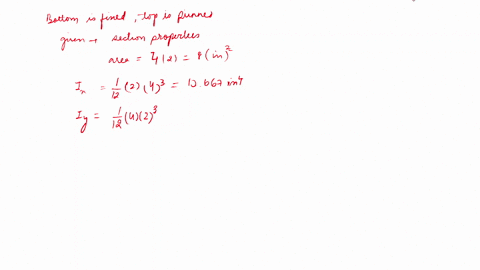 Bottom is fixed, top is pinned
given → section properties
area = 4(2) = 8 (in)²
Iₓ = 1/12 (2) (4)³ = 10.667 in⁴
I_y = 1/12 (4)(2)³